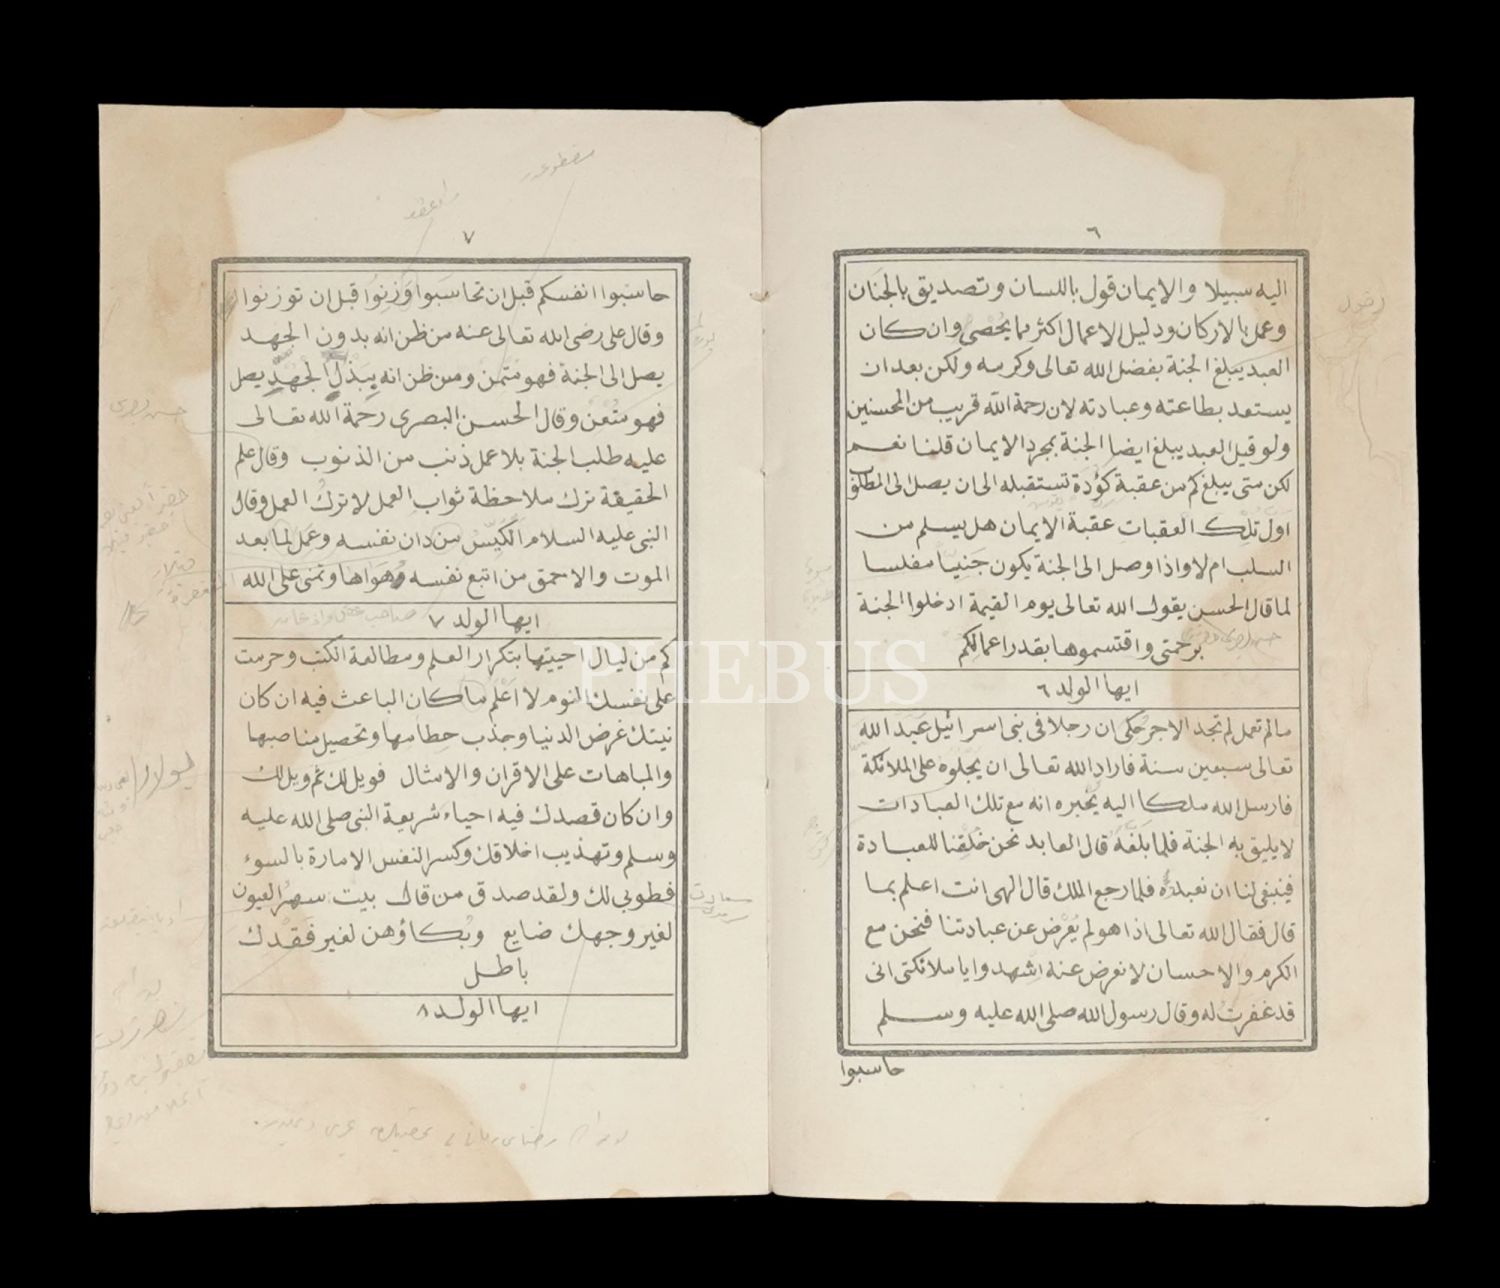 ٦
اليه سبيلا والايمان قول باللسان وتصديق بالجنان
وعمل بالاركان ودليل الاعمال اكثر مما يحصى وان كان
العبد يبلغ الجنة بفضل الله تعالى وكرمه ولكن بعد ان
يستعد بطاعته وعبادته لان رحمة الله قريب من المحسنين
ولو قيل العبد يبلغ ايضا الجنة بمجرد الايمان قلنا نعم
لكن متى يبلغ كم من عقبة كؤدة تستقبله الى ان يصل الى المطلوب
اول تلك العقبات عقبة الايمان هل يسلم من
السلب ام لا واذا وصل الى الجنة يكون جنيا مفلسا
لما قال الحسن يقول الله تعالى يوم القيمة ادخلوا الجنة
برحمتى واقتسموها بقدر اعمالكم
ايها الولد ٦
مالم تعمل لم تجد الاجر حكى ان رجلا فى بنى اسرائيل عبد الله
تعالى سبعين سنة فاراد الله تعالى ان يجلوه على الملائكة
فارسل الله ملكا اليه يخبره انه مع تلك العبادات
لا يليق به الجنة فلما بلغه قال العابد نحن خلقنا للعبادة
فينبغى لنا ان نعبده فلما رجع الملك قال الهى انت اعلم بما
قال فقال الله تعالى اذا هو لم يعرض عن عبادتنا فنحن مع
الكرم والاحسان لا نعرض عنه اشهدوا يا ملائكتى انى
قد غفرت له وقال رسول الله صلى الله عليه وسلم
حاسبوا
٧
حاسبوا انفسكم قبل ان تحاسبوا وزنوا قبل ان توزنوا
وقال على رضى الله تعالى عنه من ظن انه بدون الجهد
يصل الى الجنة فهو متمن ومن ظن انه يبذل الجهد يصل
فهو متعن وقال الحسن البصرى رحمة الله تعالى
عليه طلب الجنة بلا عمل ذنب من الذنوب وقال علم
الحقيقة ترك ملاحظة ثواب العمل لا ترك العمل وقال
النبى عليه السلام الكيس من دان نفسه وعمل لما بعد
الموت والاحمق من اتبع نفسه وهواها وتمنى على الله
ايها الولد ٧
كم من ليال احييتها بتكرار العلم ومطالعة الكتب وحرمت
على نفسك النوم لا اعلم ما كان الباعث فيه ان كان
نيتك غرض الدنيا وجذب حطامها وتحصيل مناصبها
والمباهات على الاقران والامثال فويل لك ثم ويل لك
وان كان قصدك فيه احياء شريعة النبى صلى الله عليه
وسلم وتهذيب اخلاقك وكسر النفس الامارة بالسوء
فطوبى لك ولقد صدق من قال بيت سهر العيون
لغير وجهك ضايع وبكاؤهن لغير فقدك
باطل
ايها الولد ٨
PHEBUS